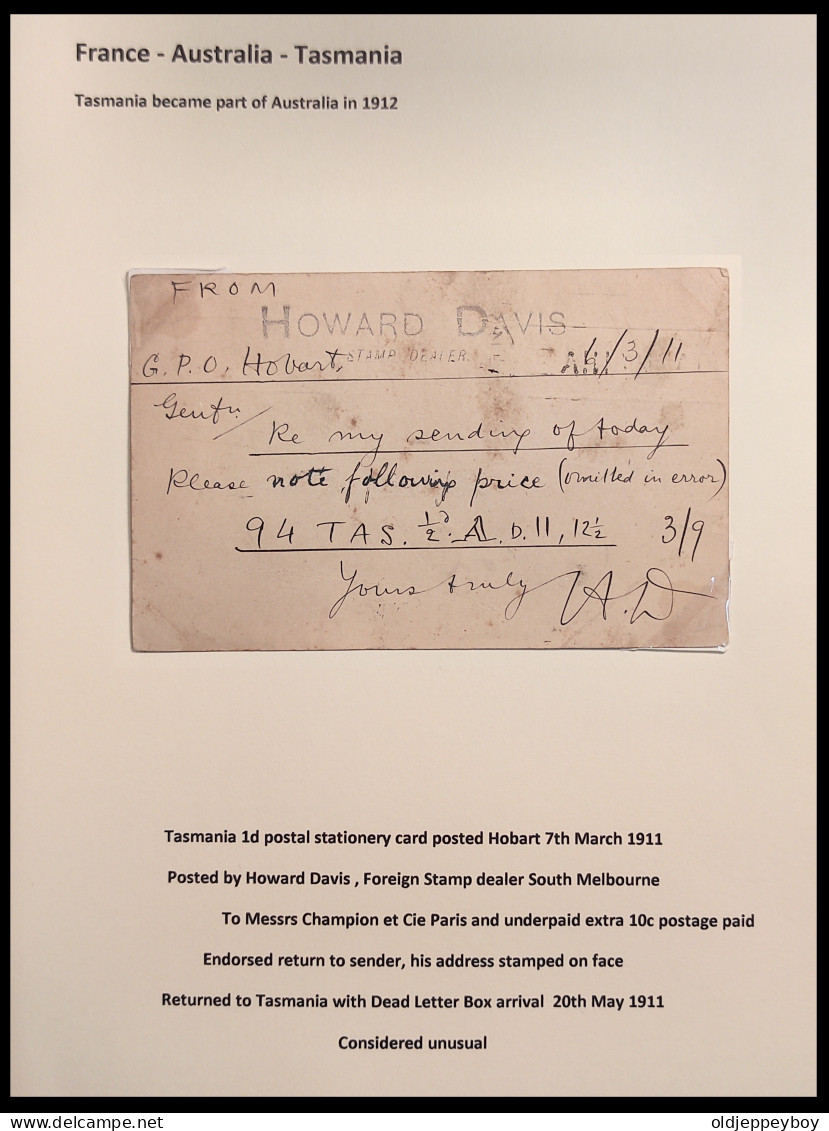 France - Australia - Tasmania
Tasmania became part of Australia in 1912
FROM
HOWARD DAVIS
STAMP DEALER.
G.P.O, Hobart, 6/3/11
Gentn
Re my sending of today
Please note following price (omitted in error)
94 TAS. ½d. D. 11, 12½ 3/9
Yours truly H.D
Tasmania 1d postal stationery card posted Hobart 7th March 1911
Posted by Howard Davis , Foreign Stamp dealer South Melbourne
To Messrs Champion et Cie Paris and underpaid extra 10c postage paid
Endorsed return to sender, his address stamped on face
Returned to Tasmania with Dead Letter Box arrival 20th May 1911
Considered unusual
oldjeppeyboy